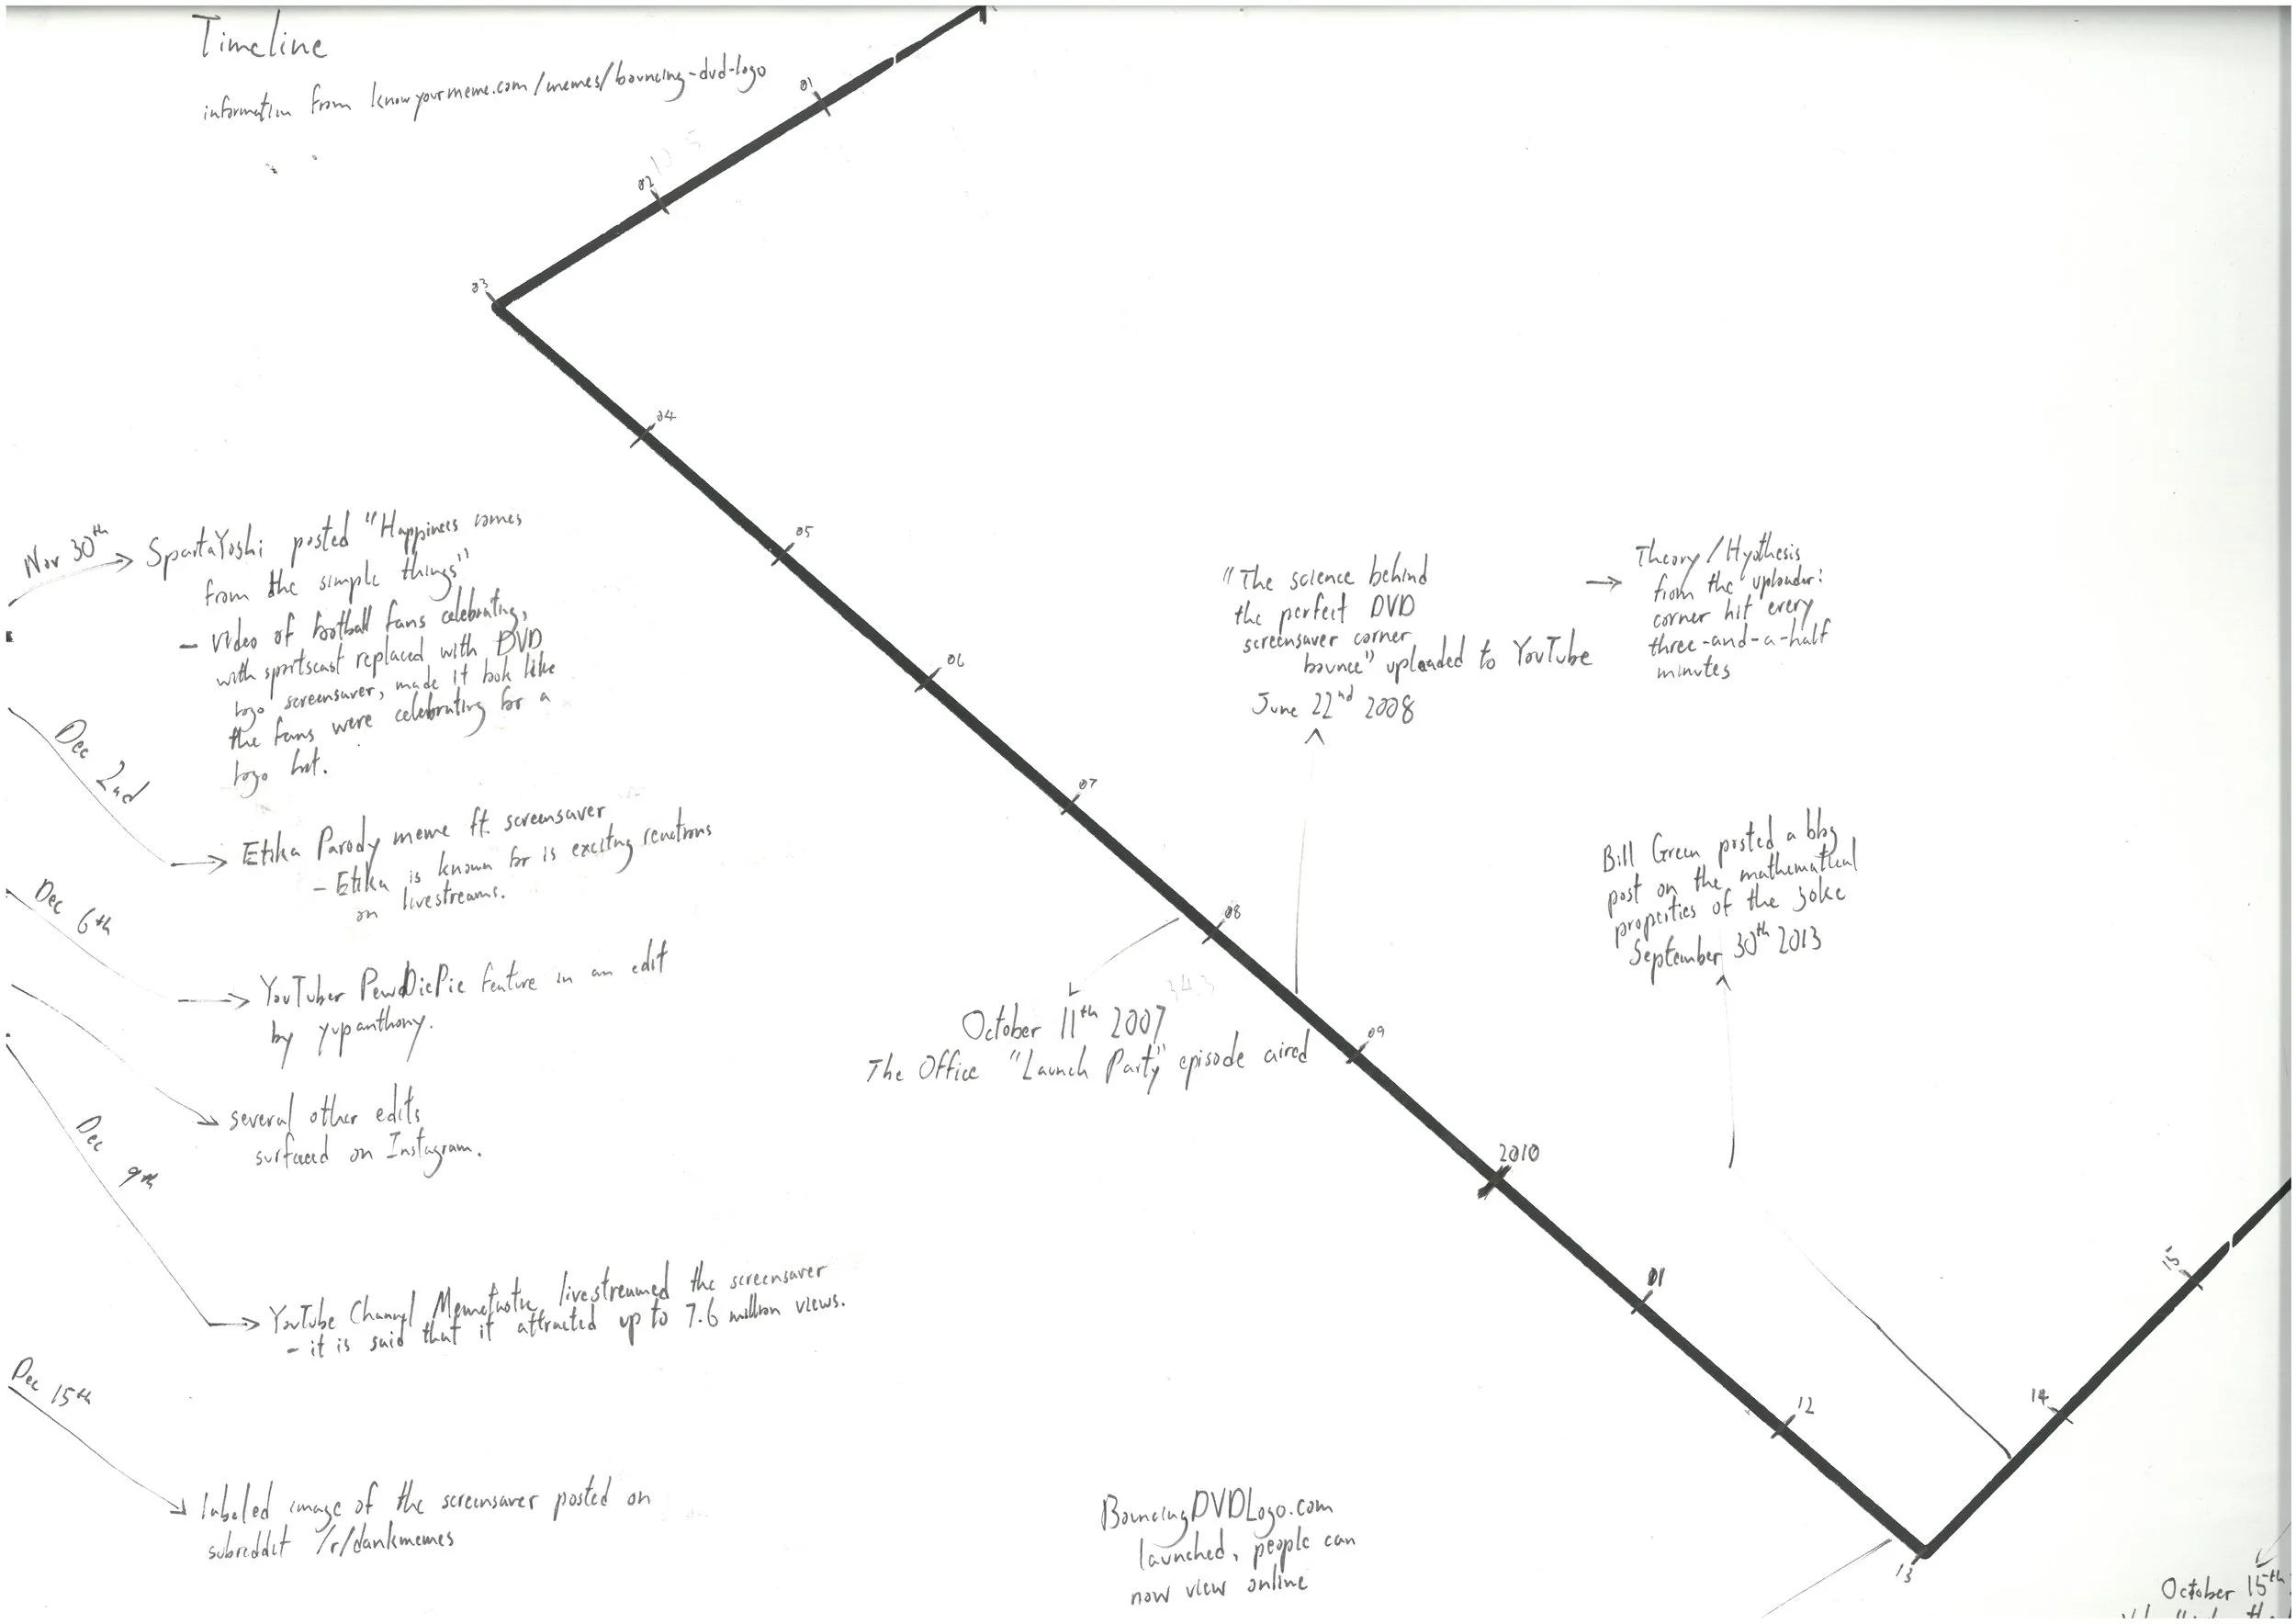 Timeline
information from knowyourmeme.com/memes/bouncing-dvd-logo
01
02
03
04
05
06
07
08
09
2010
01
12
13
14
15
Nov 30th
SpartaYoshi posted "Happiness comes
from the simple things"
- video of football fans celebrating,
with sportscast replaced with DVD
logo screensaver, made it look like
the fans were celebrating for a
logo hit.
Dec 2nd
Etika Parody meme ft. screensaver
- Etika is known for is exciting reactions
on livestreams.
Dec 6th
YouTuber PewDiePie feature in an edit
by yupanthony.
several other edits
surfaced on Instagram.
Dec 9th
YouTube Channel Memetastic livestreamed the screensaver
- it is said that it attracted up to 7.6 million views.
Dec 15th
labeled image of the screensaver posted on
subreddit /r/dankmemes
"The science behind
the perfect DVD
screensaver corner
bounce" uploaded to YouTube
June 22nd 2008
Theory/Hyothesis
from the uploader:
corner hit every
three-and-a-half
minutes
October 11th 2007
34.3
The Office "Launch Party" episode aired
Bill Green posted a blog
post on the mathematical
properties of the joke
September 30th 2013
BouncingDVDLogo.com
launched, people can
now view online
October 15th